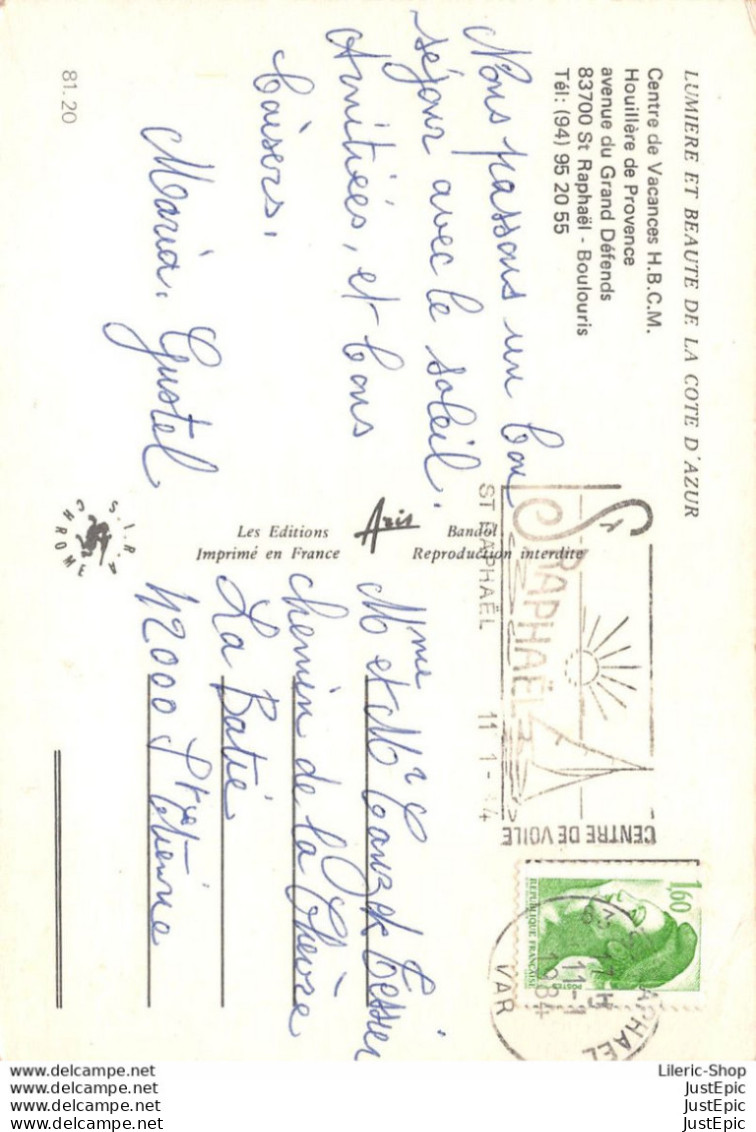 LUMIERE ET BEAUTE DE LA COTE D'AZUR
Centre de Vacances H.B.C.M.
Houillère de Provence
avenue du Grand Défends
83700 St Raphaël - Boulouris
Tél: (94) 95 20 55
Nous passons un bon
séjour avec le soleil.
Amitiées, et bons
baisers.
Maria, Gustel
81.20
S.I.R.A
CHROME
Les Editions
Aris
Bandol
Imprimé en France
Reproduction interdite
ST RAPHAËL 11-1-84
ST RAPHAËL
CENTRE DE VOILE
1,60
REPUBLIQUE FRANÇAISE
POSTES
83 ST RAPHAEL
17 H
11-1
1984
VAR
Mme et Mr
Tessier
chemin de la Chèvre
La Batie
42000 St Etienne
Lileric-Shop
JustEpic
JustEpic
JustEpic
www.delcampe.net
www.delcampe.net
www.delcampe.net
www.delcampe.net